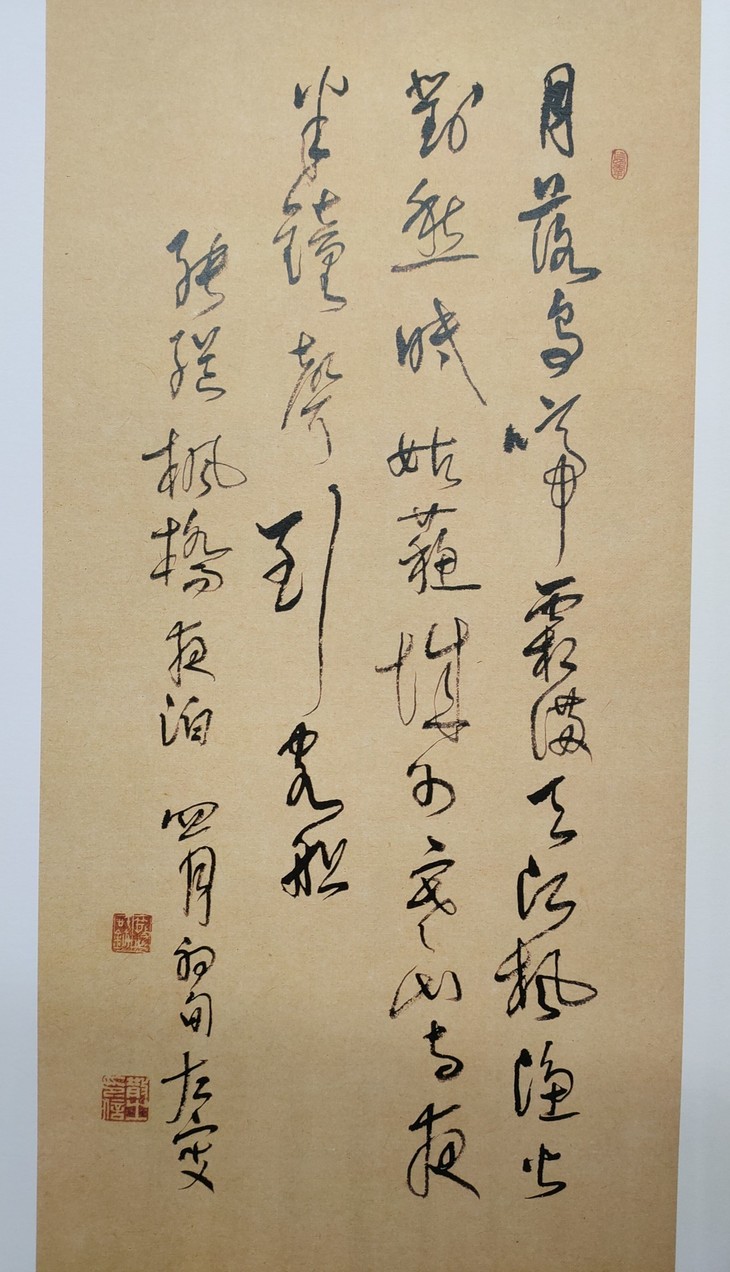 月落烏啼霜滿天江楓漁火
對愁眠姑蘇城外寒山寺夜
半鐘聲到客船
張繼楓橋夜泊 四月初旬